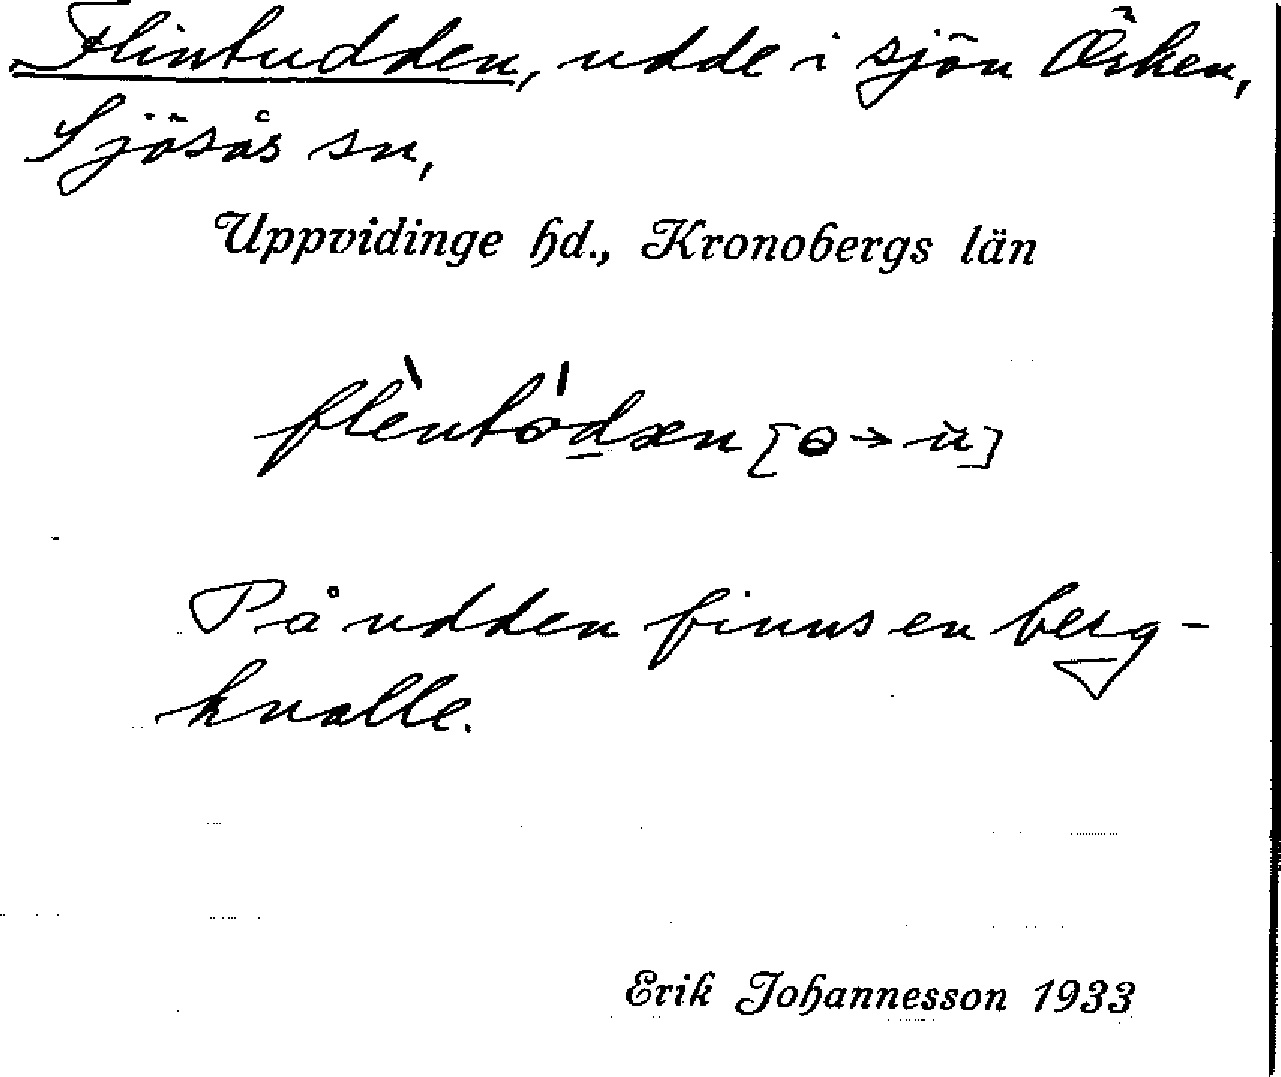 Flintudden, udde i sjön Örken,
Sjösås sn,
Uppvidinge hd., Kronobergs län
flèntòdæn [ɵ → ù]
På udden finns en berg-
knalle.
Erik Johannesson 1933